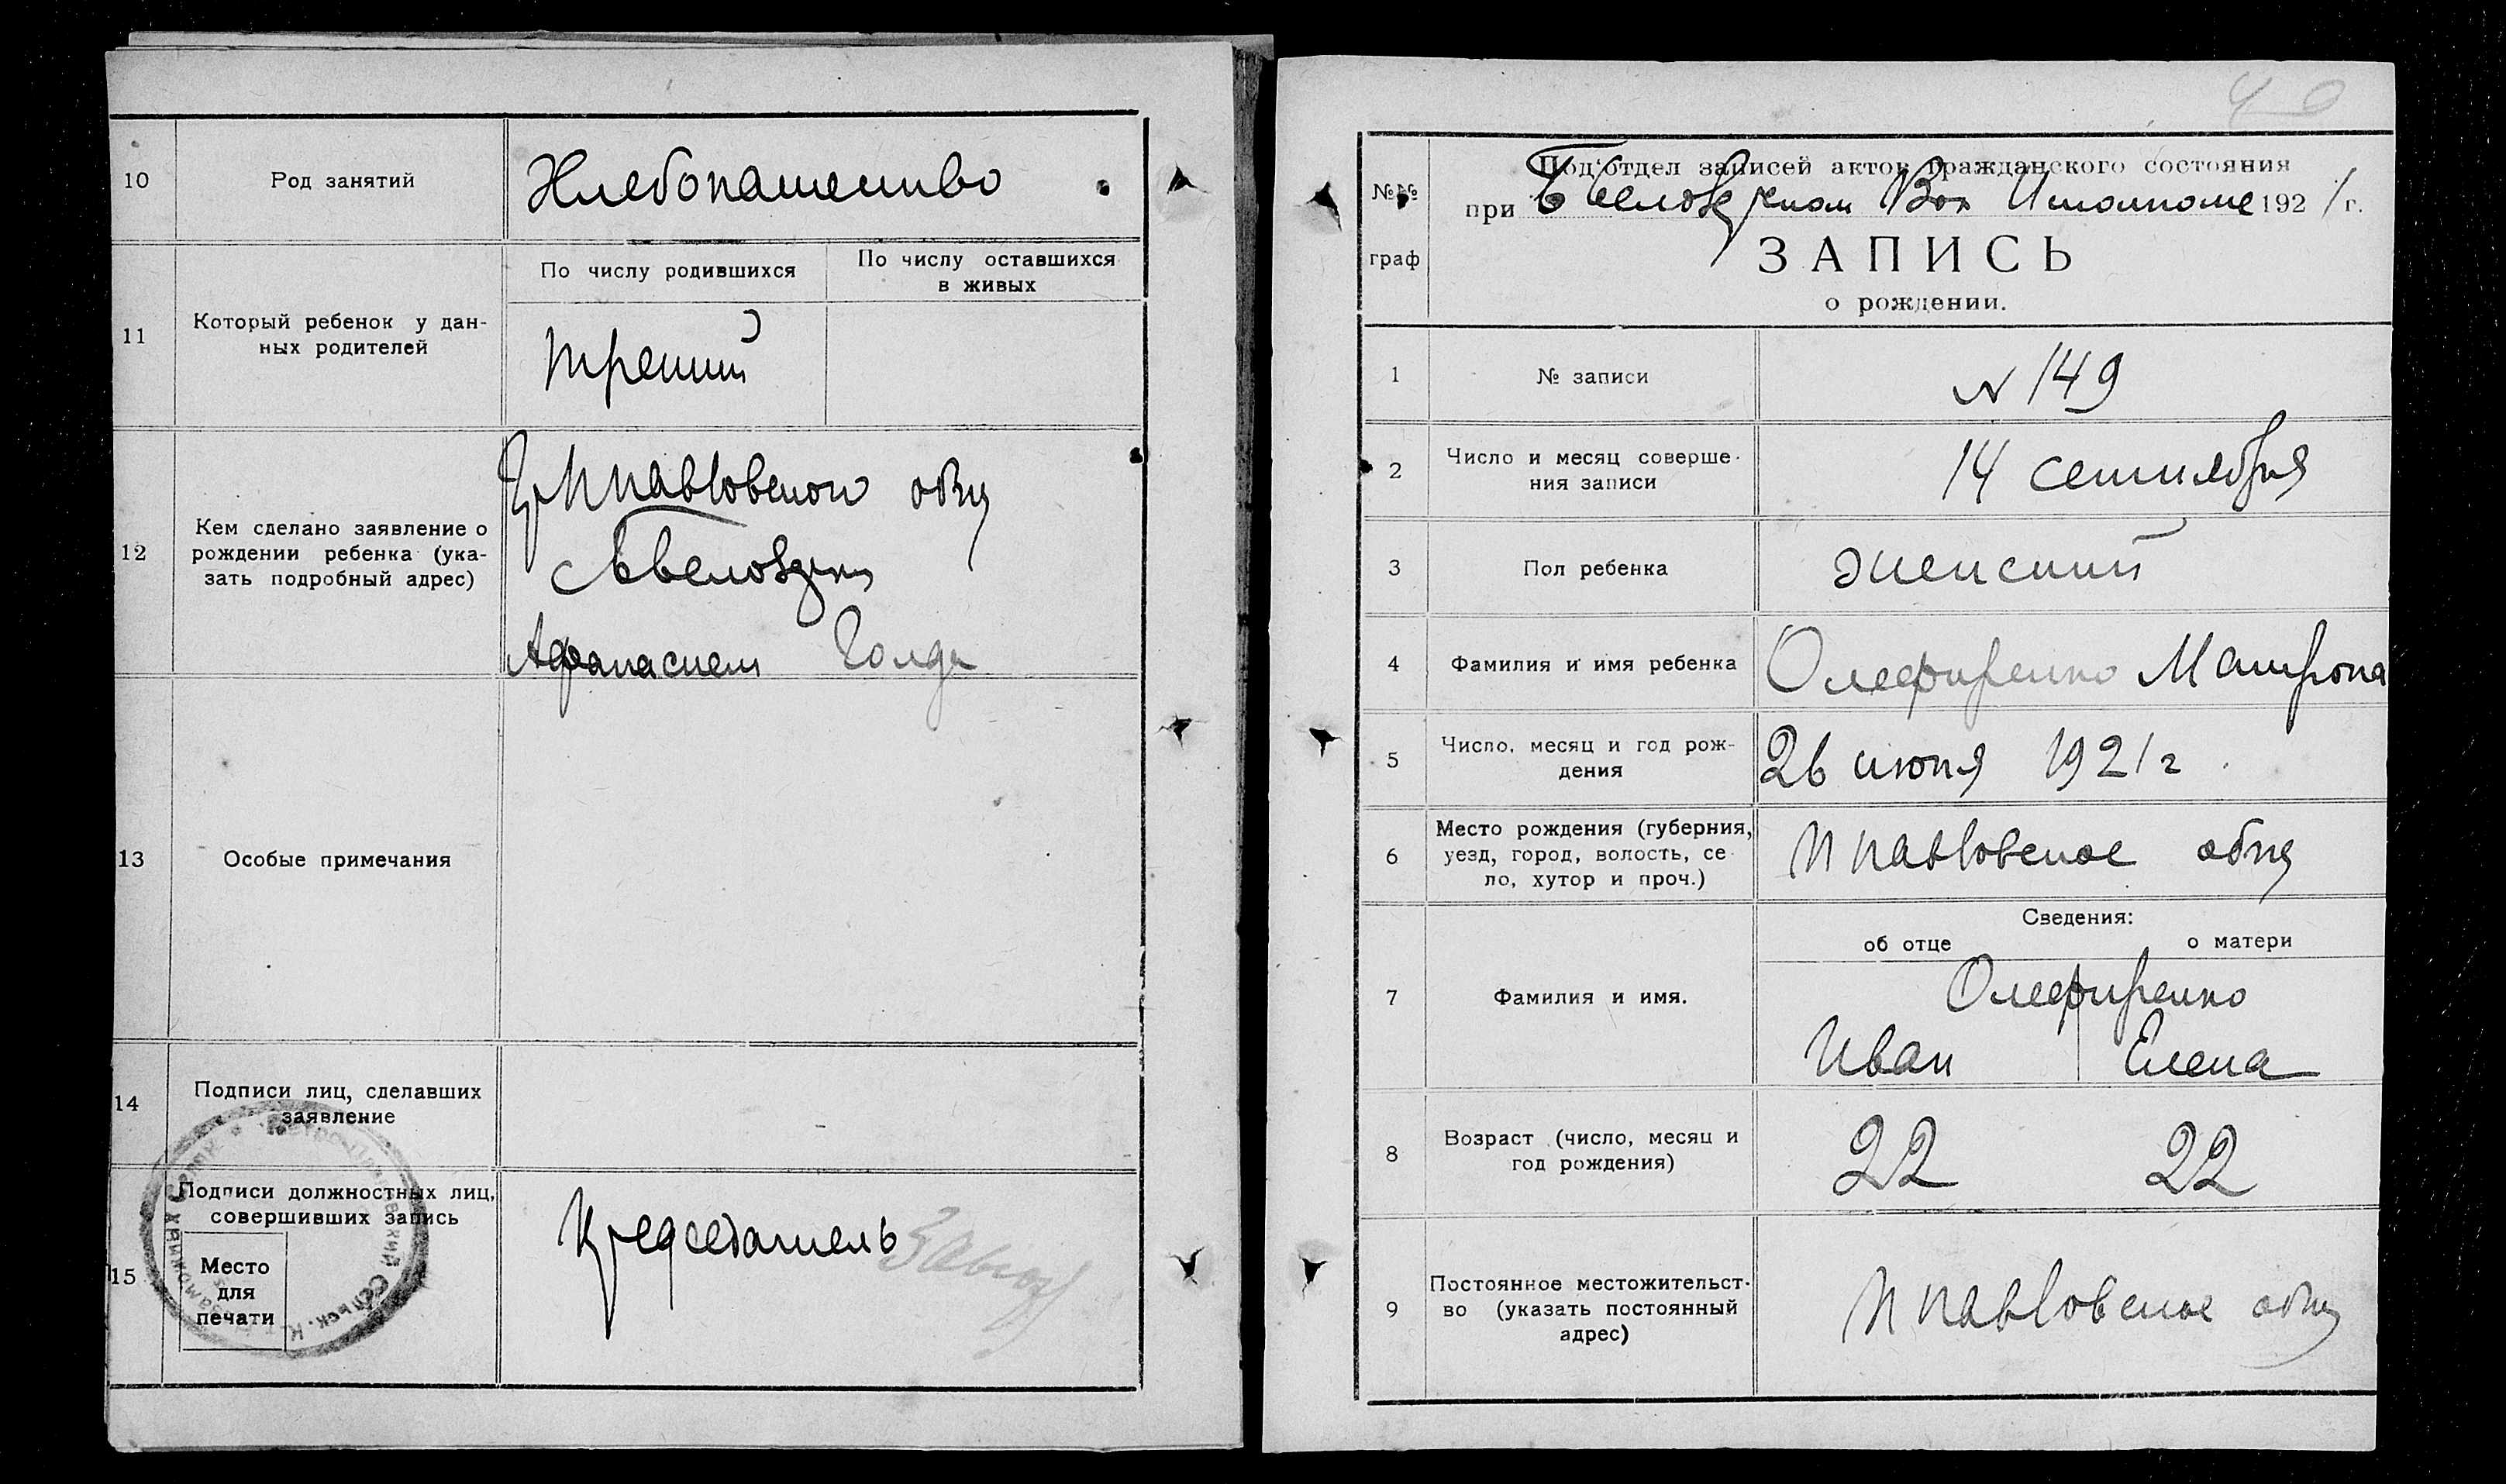 10
Род занятий
Хлебопашество
11
Который ребенок у дан-
ных родителей
По числу родившихся
По числу оставшихся
в живых
третий
12
Кем сделано заявление о
рождении ребенка (ука-
зать подробный адрес)
павловского общ
Афанасием Голда
13
Особые примечания
14
Подписи лиц, сделавших
заявление
15
Подписи должностных лиц,
совершивших запись
Место
для
печати
Председатель
40
№№
граф
Под'отдел записей актов гражданского состояния
при Беловежском Вол Исполкоме 1921 г.
ЗАПИСЬ
о рождении.
1
№ записи
N 149
2
Число и месяц соверше-
ния записи
14 сентября
3
Пол ребенка
женский
4
Фамилия и имя ребенка
Олефиренко Матрона
5
Число, месяц и год рож-
дения
26 июня 1921 г.
6
Место рождения (губерния,
уезд, город, волость, се-
ло, хутор и проч.)
П павловское общ
Сведения:
об отце
о матери
7
Фамилия и имя.
Олефиренко
Иван
Елена
8
Возраст (число, месяц и
год рождения)
22
22
9
Постоянное местожительст-
во (указать постоянный
адрес)
П павловское общ